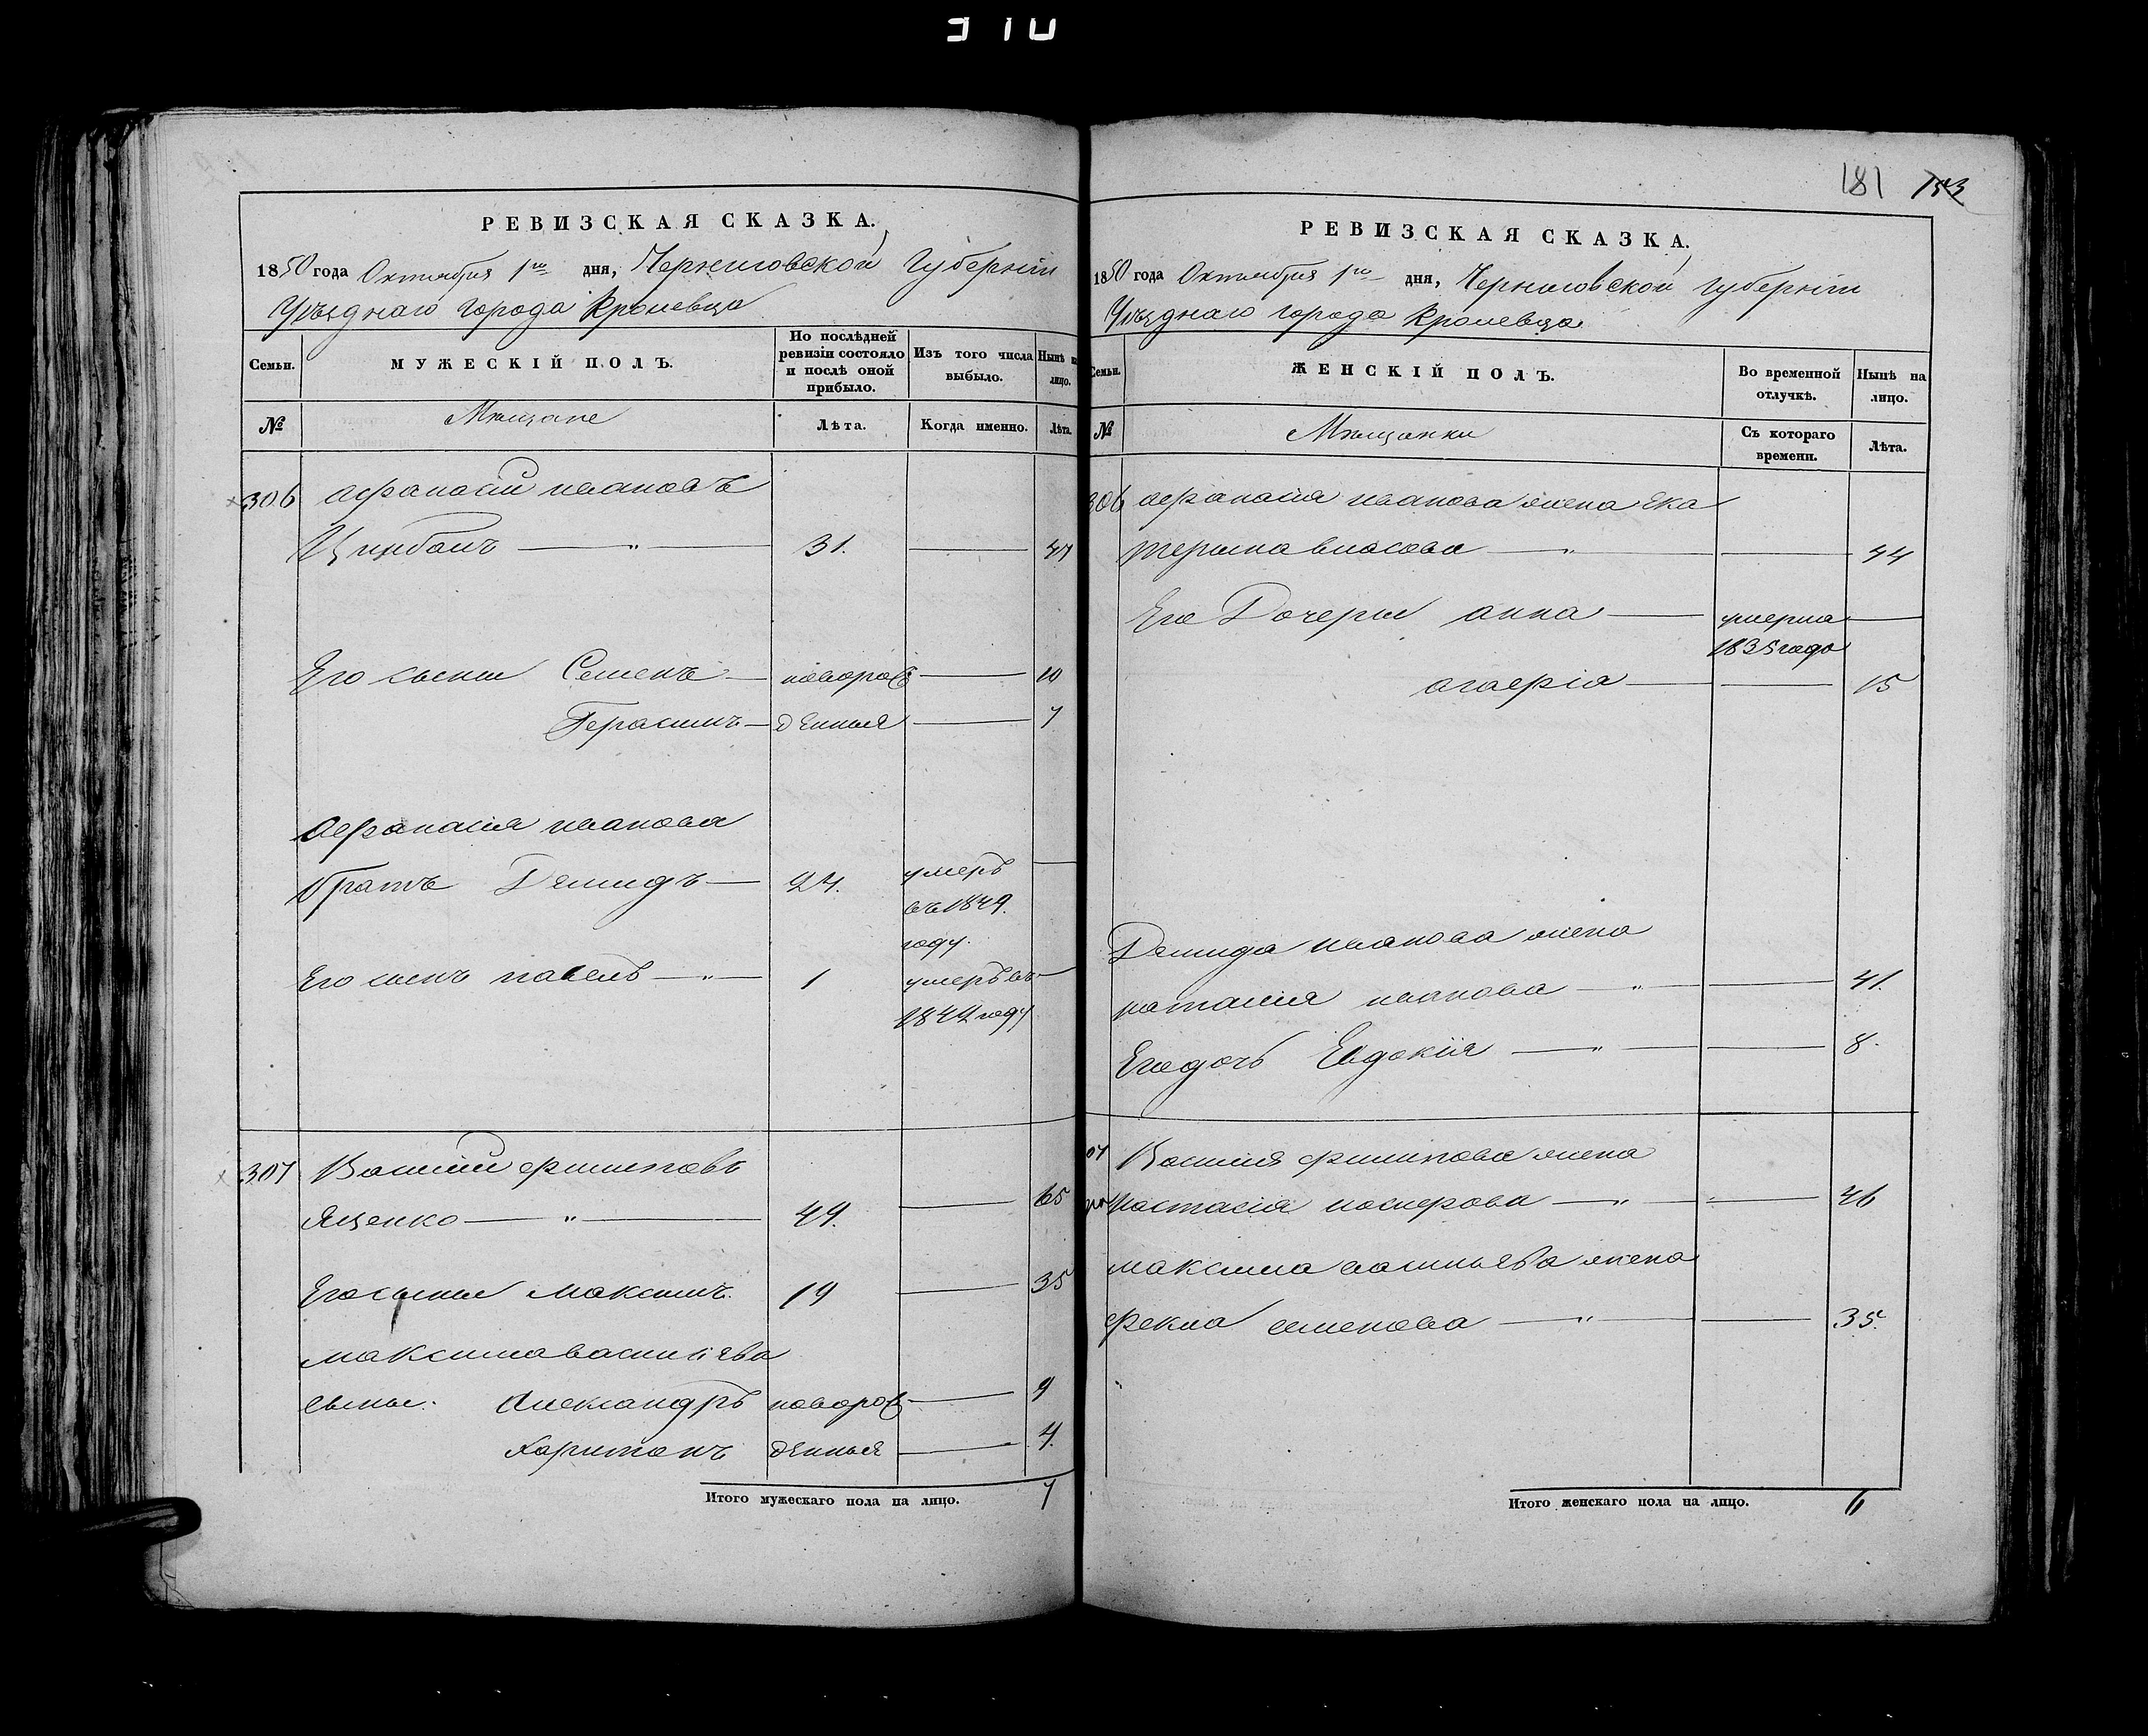 310
РЕВИЗСКАЯ СКАЗКА.
1850 года Октября 1го дня, Черниговской Губернии
Уѣзднаго города Кролевца
Семьи.
МУЖЕСКІЙ ПОЛЪ.
По послѣдней ревизіи состояло и послѣ оной прибыло.
Изъ того числа выбыло.
Нынѣ на лицо.
№
Мѣщане
Лѣта.
Когда именно.
Лѣта.
306 Афанасий ивановъ
Цинбалъ — " — 31. — 47
Его сыны Семенъ — новорож — 10
Герасимъ — денныя — 7
Афанасия иванова
братъ Демидъ — 24. умеръ
въ 1849.
году.
Его сынъ павелъ — " — 1 умеръ въ —
1842 году
307 Василий филиповъ
Яценко — " — 49. — 65
Его сыны Максимъ. 19 — 35
максима васильева
сыны. Александръ новорож — 9
Харитонъ денныя — 4.
Итого мужескаго пола на лицо. 7
181
РЕВИЗСКАЯ СКАЗКА.
1850 года Октября 1го дня, Черниговской губернии
Уѣзднаго города Кролевца
Семьи.
ЖЕНСКІЙ ПОЛЪ.
Во временной отлучкѣ.
Нынѣ на лицо.
№
Мѣщанки
Съ котораго времени.
Лѣта.
306 афанасия иванова жена Ека
терина власова — " — 44
Его Дочери анна — умерла —
1835 года
агафія — 15
Демида иванова жена
наталия иванова — " — 41.
Его дочь Евдокия — " — 8.
07 Василия филипова жена
настасія — " — 46
максима васильева жена
фекла семенова — " — 35.
Итого женскаго пола на лицо. 6